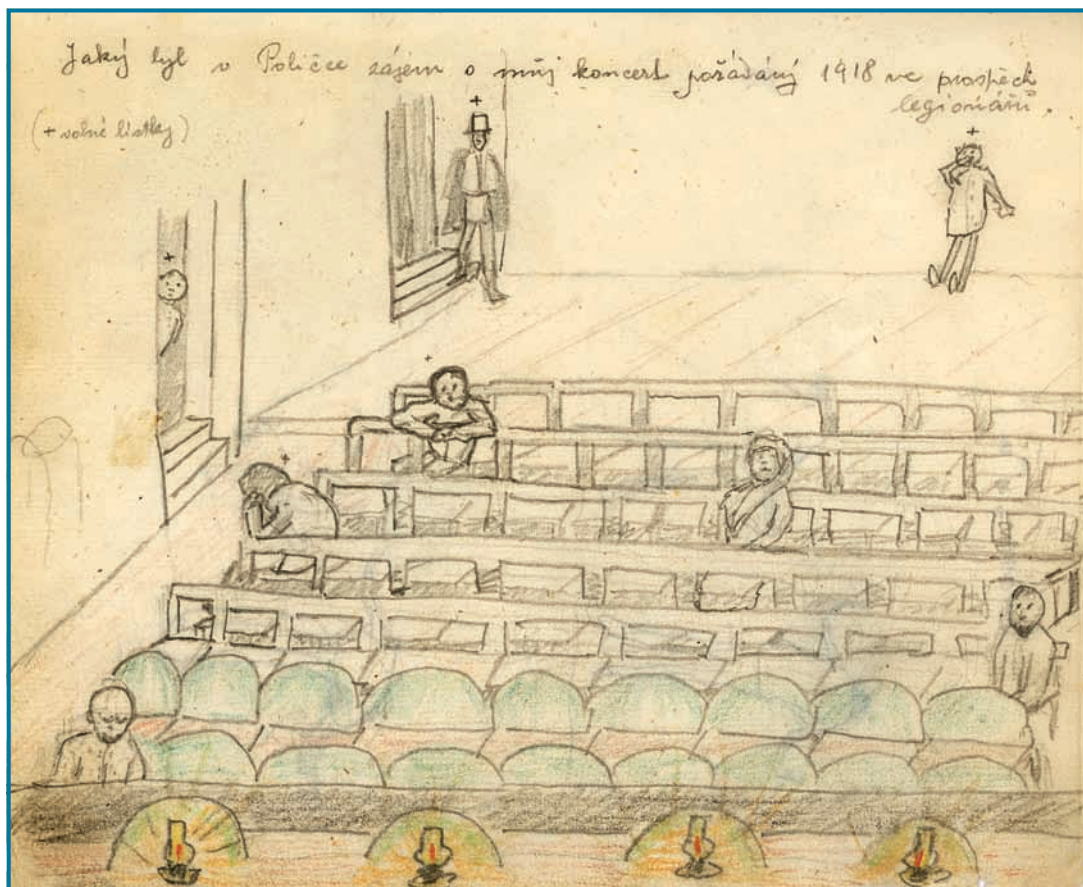 Jaký byl v Poličce zájem o můj koncert pořádaný 1918 ve prospěch
legionářů.
(+ volné lístky)